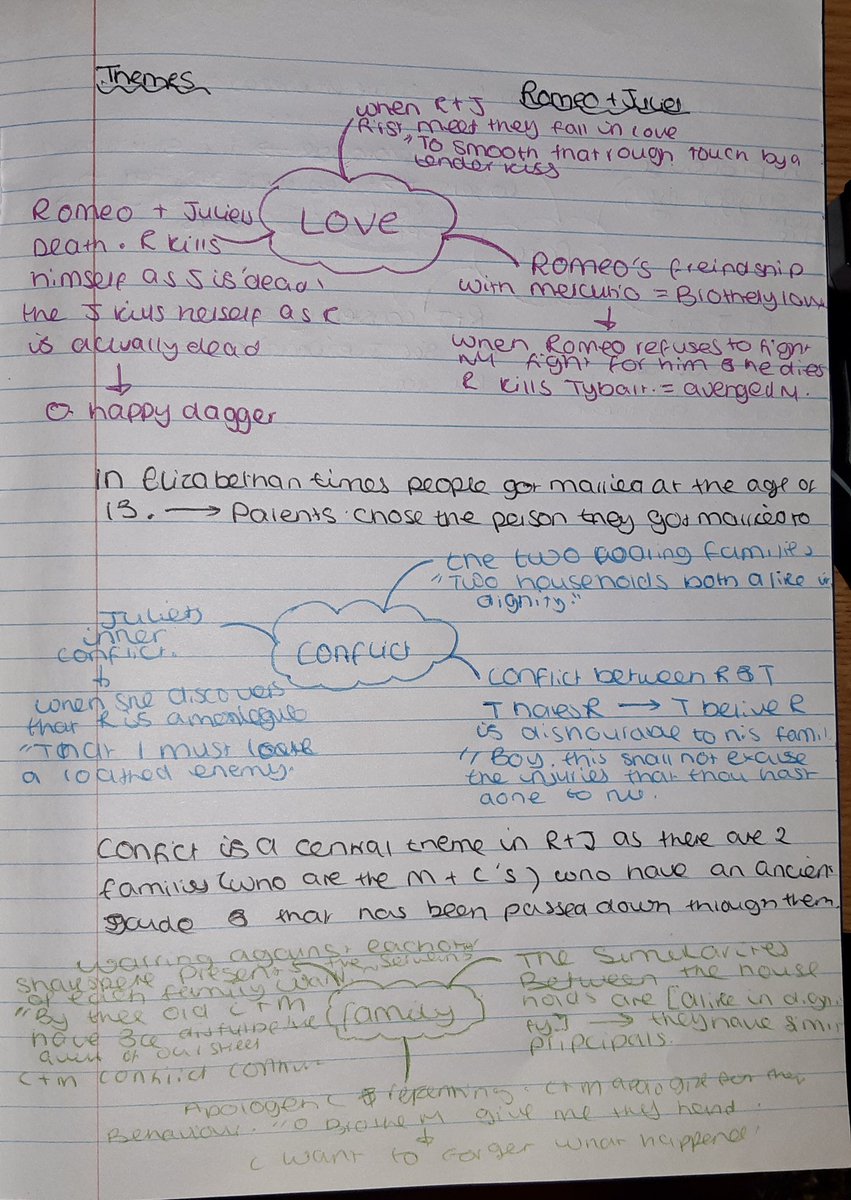 Themes
Romeo + Juliet
when R+J
first meet they fall in love
"To smooth that rough touch by a
tender kiss
LOVE
Romeo + Juliets
Death. R kills
himself as J is 'dead'
the J kills herself as R
is actually dead
O happy dagger
Romeo's freindship
with mercutio = Brothely love
when Romeo refuses to fight
M fight for him & he dies
R kills Tybalt. = avenged M.
In Elizabethan times people got married at the age of
13. → Parents chose the person they got married to
the two families
"Two households both alike in
dignity."
Conflict
Juliets
inner
conflict.
when she discovers
that R is a
"That I must love
a loathed enemy.
Conflict between R & T
T hates R → T belive R
is dishourable to his famil
"Boy, this shall not excuse
the injuries that thou hast
done to me.
Conflict is a central theme in R+J as there are 2
families (who are the M + C's) who have an ancient
that has been passed down through them.
Warring against each other
of each family
"By thee old C + M
have 3ce
C+M conflict
family
The Similarites
Between the house
holds are [alike in dign
ity] → they have simi
principals.
Apologetic & repenting. C+M apologise for their
Behaviour. "O Brothe M give me thy hand.
C want to forget what happened